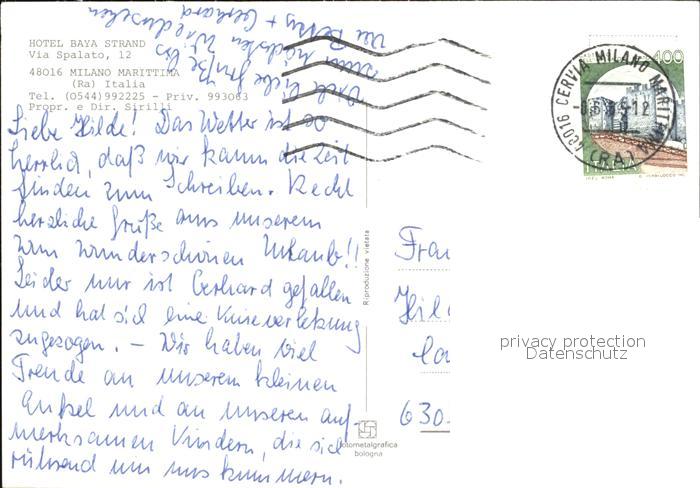 HOTEL BAYA STRAND
Via Spalato, 12
48016 MILANO MARITTIMA
(Ra) Italia
Tel. (0544) 992225 - Priv. 993063
Propr. e Dir. Sirilli
Liebe Hilde! Das Wetter ist so
herrlich, daß wir kaum die Zeit
finden zum Schreiben. Recht
herzliche Grüße aus unserem
wunderschönen Urlaub!!
Leider nur ist Gerhard gefallen
und hat sich eine Knieverletzung
zugezogen. – Wir haben viel
Freude an unserem kleinen
Enkel und an unseren auf-
merksamen Kindern, die sich
rührend um uns kümmern.
Viele liebe Grüße bis
zum nächsten Wiedersehen
+ Gerhard
Riproduzione vietata
fotometalgrafica
bologna
400
48016 CERVIA MILANO MARITTIMA
(RA)
Frau
Hil
630
privacy protection
Datenschutz